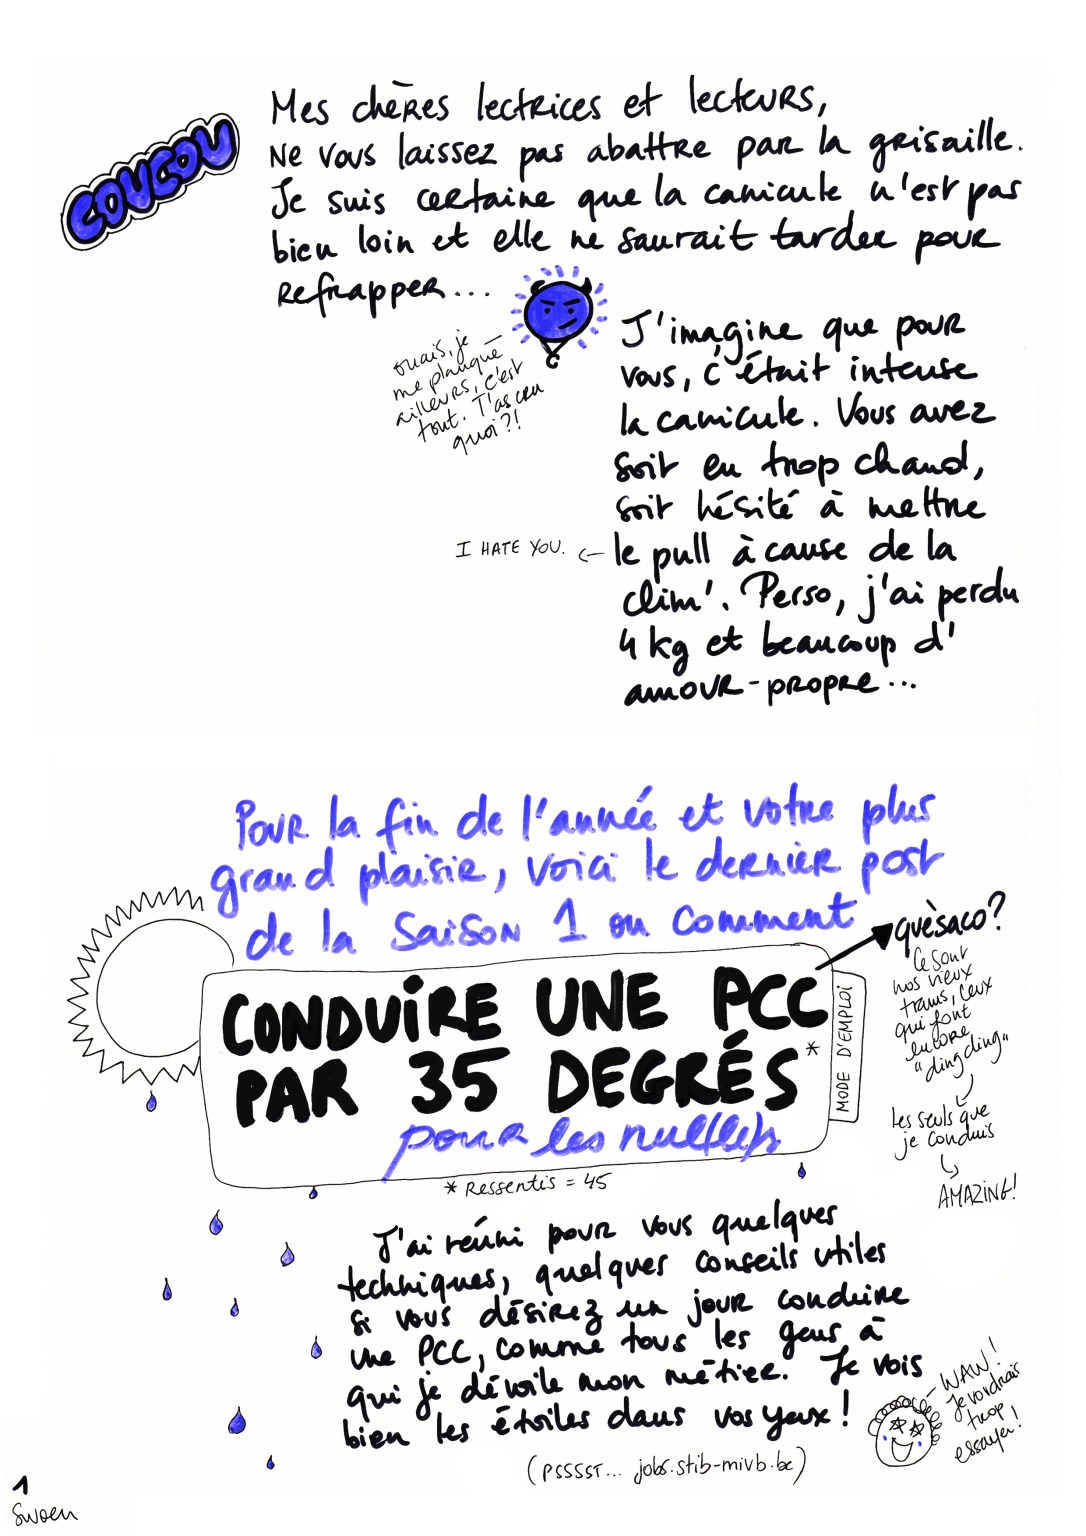 COUCOU
Mes chères lectrices et lecteurs,
Ne vous laissez pas abattre par la grisaille.
Je suis certaine que la canicule n'est pas
bien loin et elle ne saurait tarder pour
refrapper...
ouais, je
me planque
ailleurs, c'est
tout. T'as cru
quoi?!
J'imagine que pour
vous, c'était intense
la canicule. Vous avez
soit eu trop chaud,
soit hésité à mettre
I HATE YOU.
le pull à cause de la
clim'. Perso, j'ai perdu
4 kg et beaucoup d'
amour-propre...
Pour la fin de l'année et votre plus
grand plaisir, voici le dernier post
de la Saison 1 ou comment
CONDUIRE UNE PCC
PAR 35 DEGRÉS*
pour les nul(le)s
MODE D'EMPLOI
* Ressentis = 45
quèsaco?
Ce sont
nos vieux
trams, ceux
qui font
encore
"ding ding"
les seuls que
je conduis
AMAZING!
J'ai réuni pour vous quelques
techniques, quelques conseils utiles
si vous désirez un jour conduire
une PCC, comme tous les gens à
qui je dévoile mon métier. Je vois
bien les étoiles dans vos yeux!
WAW!
Je voudrais
trop
essayer!
(PSSSST... jobs.stib-mivb.be)
1
Swoen